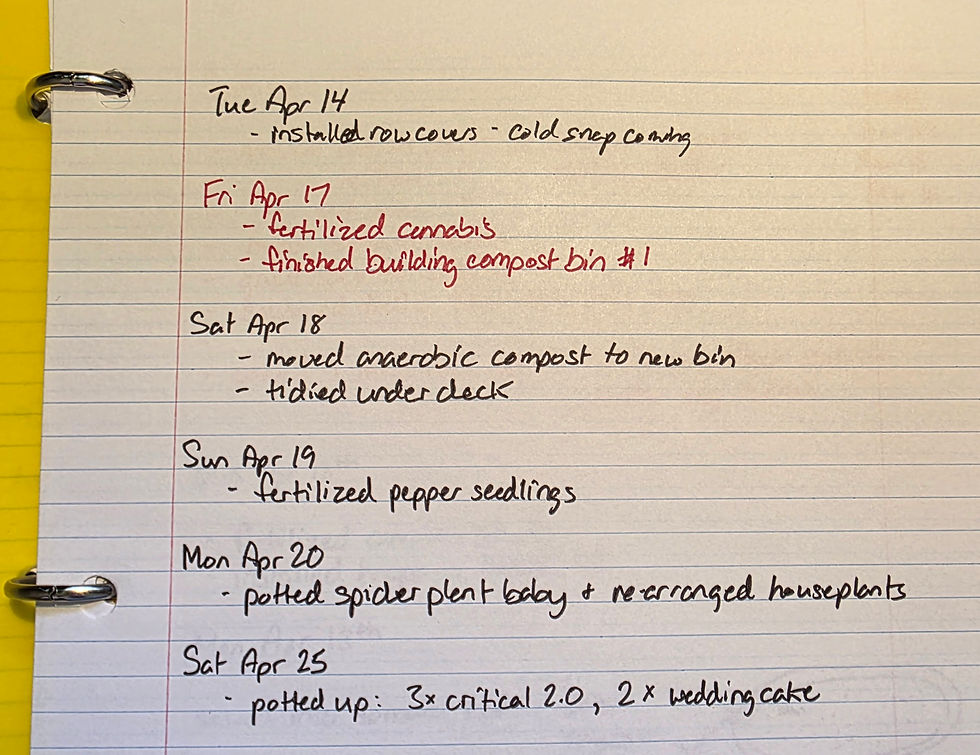 Tue Apr 14
- installed row covers - cold snap coming
Fri Apr 17
- fertilized cannabis
- finished building compost bin #1
Sat Apr 18
- moved anaerobic compost to new bin
- tidied under deck
Sun Apr 19
- fertilized pepper seedlings
Mon Apr 20
- potted spider plant baby + re-arranged houseplants
Sat Apr 25
- potted up: 3x critical 2.0, 2x wedding cake